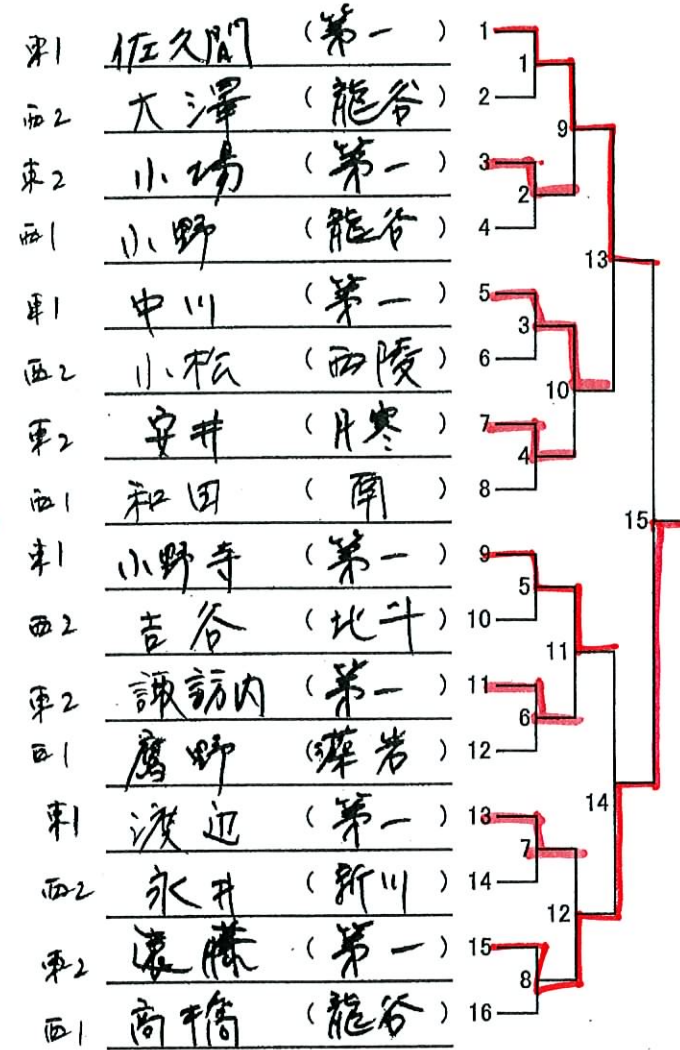 東1 佐久間 (第一) 1
西2 大澤 (龍谷) 2
東2 小場 (第一) 3
西1 小野 (龍谷) 4
東1 中川 (第一) 5
西2 小松 (西陵) 6
東2 安井 (月寒) 7
西1 和田 (南) 8
東1 小野寺 (第一) 9
西2 吉谷 (北斗) 10
東2 諏訪内 (第一) 11
西1 鷹野 (藻岩) 12
東1 渡辺 (第一) 13
西2 永井 (新川) 14
東2 遠藤 (第一) 15
西1 高橋 (龍谷) 16
1
9
2
13
3
10
4
15
5
11
6
14
7
12
8